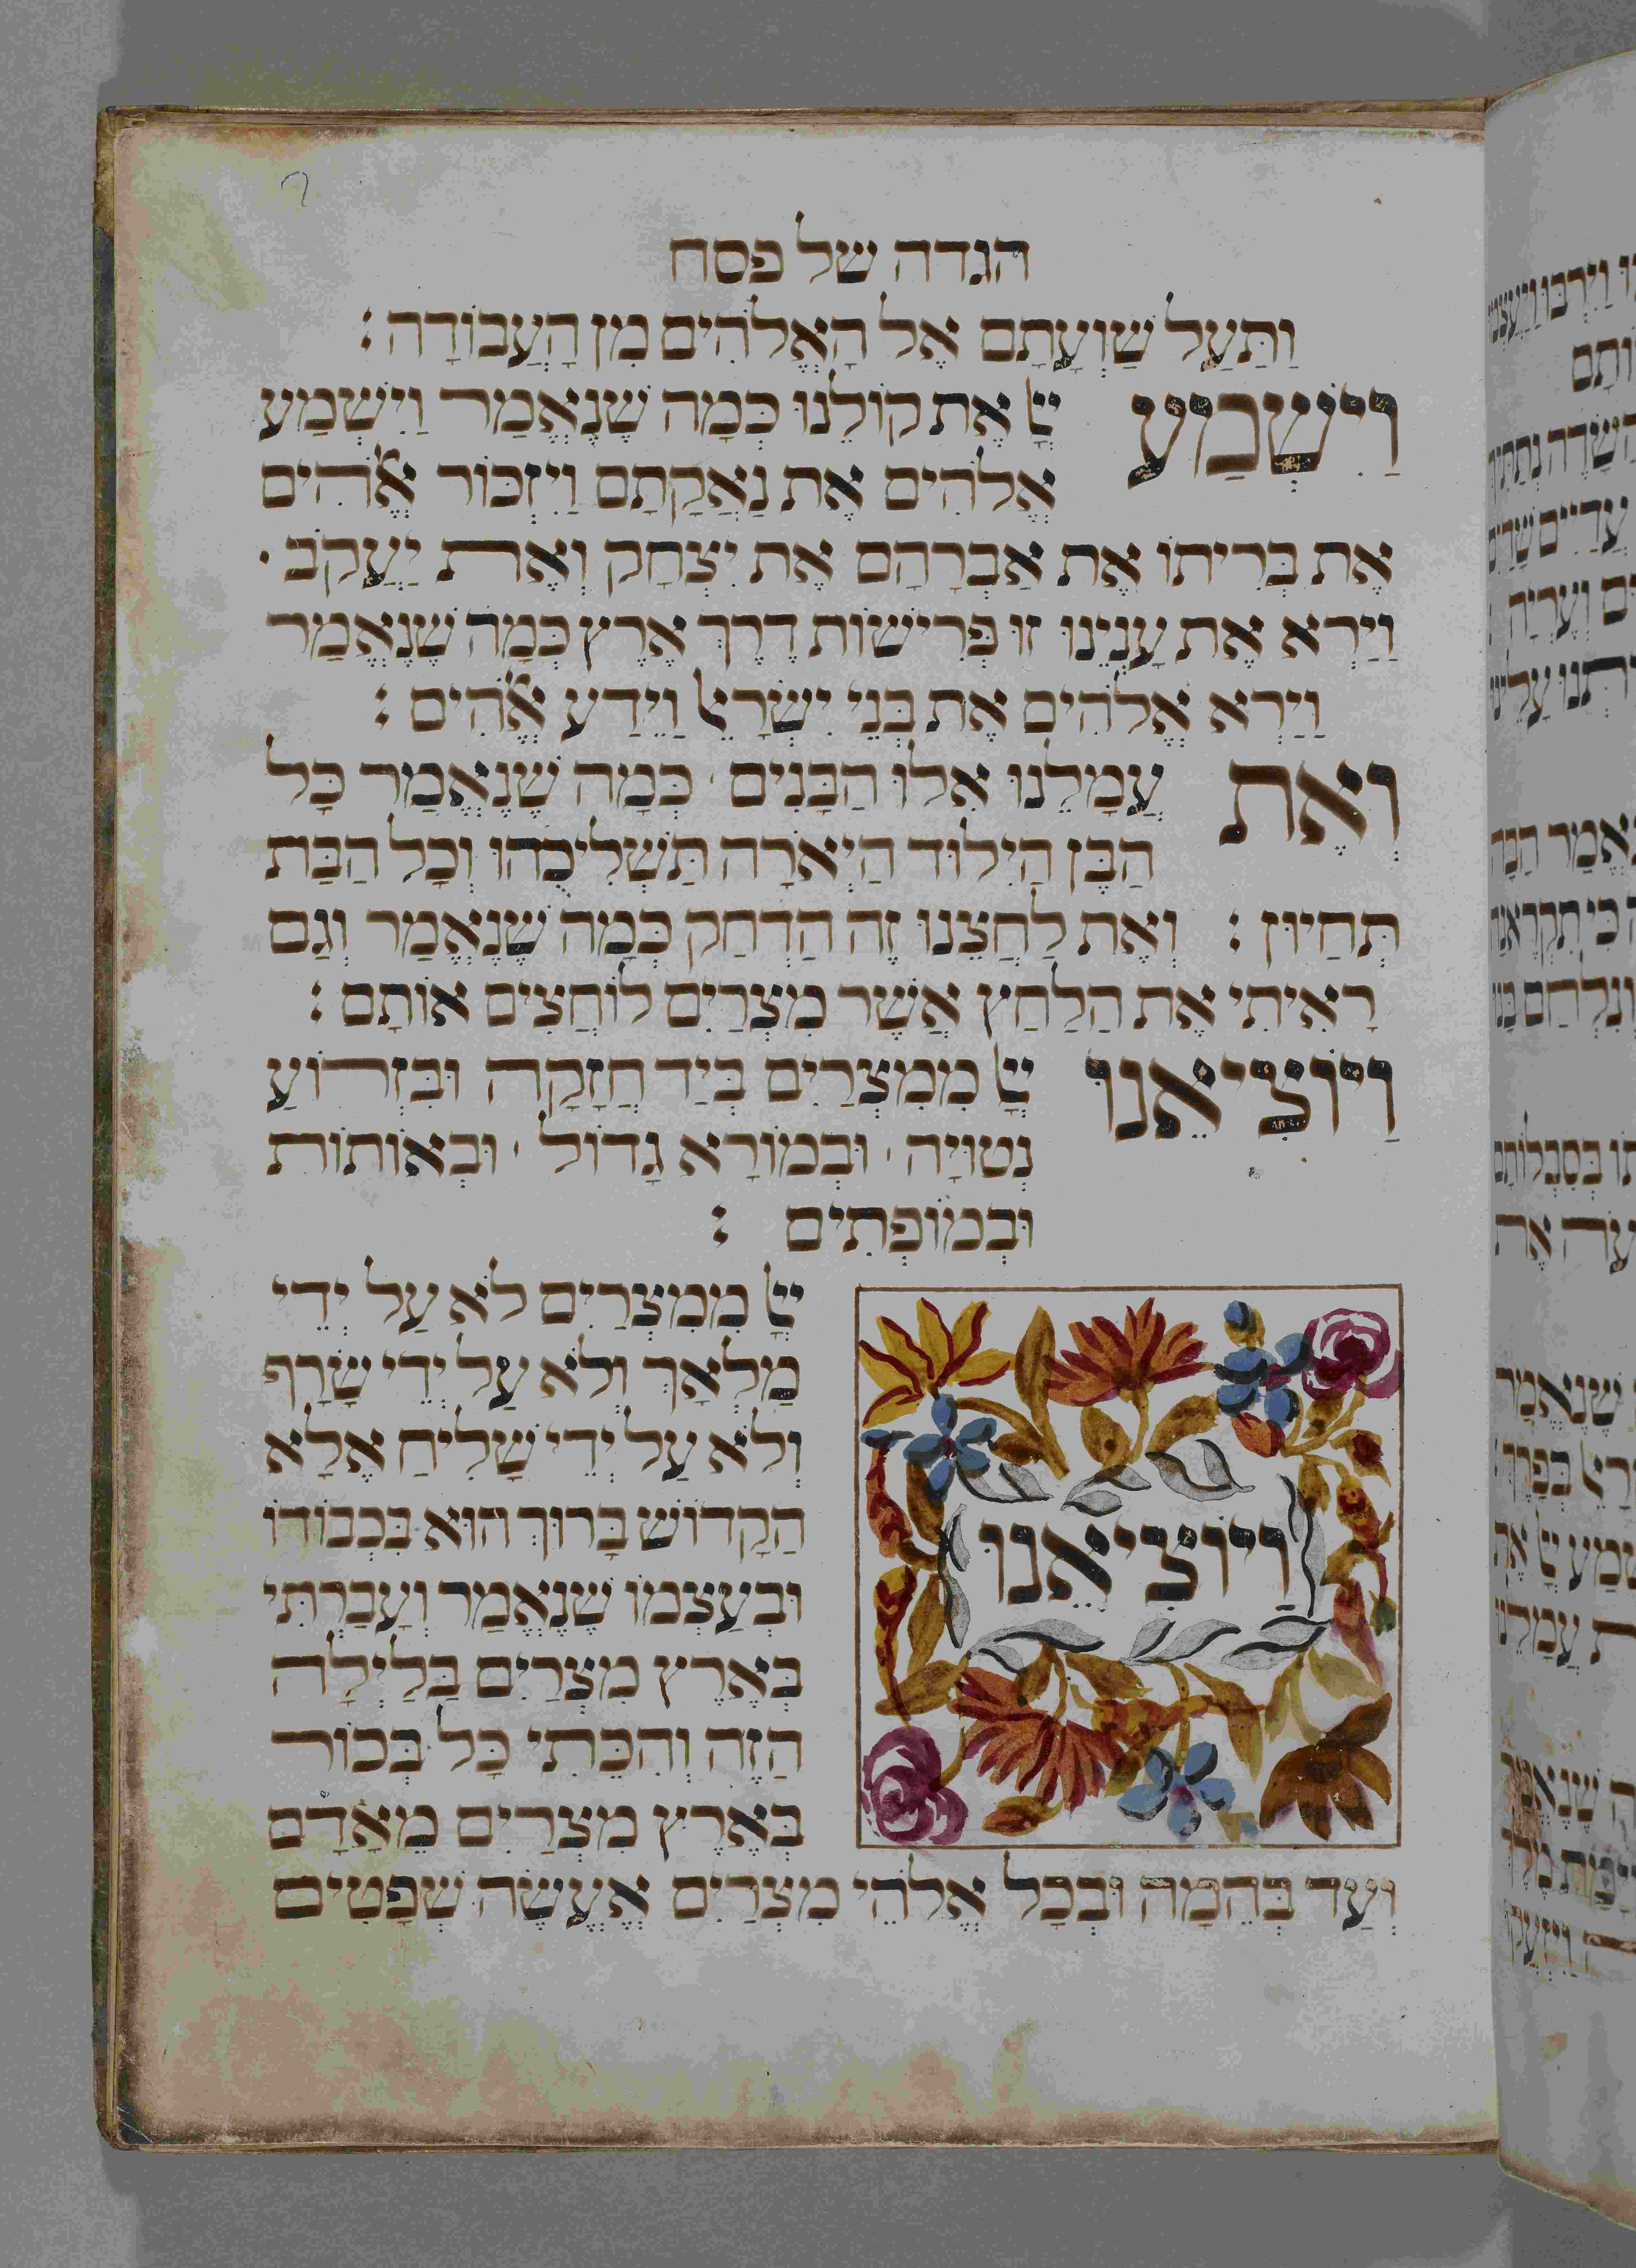 הגדה של פסח
וַתַּעַל שַׁוְעָתָם אֶל הָאֱלֹהִים מִן הָעֲבוֹדָה׃
וַיִּשְׁמַע יְיָ אֶת קוֹלֵנוּ כְּמָה שֶׁנֶּאֱמַר וַיִּשְׁמַע
אֱלֹהִים אֶת נַאֲקָתָם וַיִּזְכּוֹר אֱלֹהִים
אֶת בְּרִיתוֹ אֶת אַבְרָהָם אֶת יִצְחָק וְאֶת יַעֲקֹב׳
וַיַּרְא אֶת עָנְיֵנוּ זוּ פְּרִישׁוֹת דֶּרֶךְ אֶרֶץ כְּמָה שֶׁנֶּאֱמַר
וַיַּרְא אֱלֹהִים אֶת בְּנֵי יִשְׂרָאֵל וַיֵּדַע אֱלֹהִים׃
וְאֶת עֲמָלֵנוּ אֵלּוּ הַבָּנִים׳ כְּמָה שֶׁנֶּאֱמַר כָּל
הַבֵּן הַיִּלּוֹד הַיְאֹרָה תַּשְׁלִיכֻהוּ וְכָל הַבַּת
תְּחַיּוּן׃ וְאֶת לַחֲצֵנוּ זֶה הַדְּחַק כְּמָה שֶׁנֶּאֱמַר וְגַם
רָאִיתִי אֶת הַלַּחַץ אֲשֶׁר מִצְרַיִם לוֹחֲצִים אוֹתָם׃
וַיּוֹצִיאֵנוּ יְיָ מִמִּצְרַיִם בְּיַד חֲזָקָה וּבִזְרוֹעַ
נְטוּיָה׳ וּבְמוֹרָא גָדוֹל׳ וּבְאוֹתוֹת
וּבְמוֹפְתִים׃
וַיּוֹצִיאֵנוּ
יְיָ מִמִּצְרַיִם לֹא עַל יְדֵי
מַלְאָךְ וְלֹא עַל יְדֵי שָׂרָף
וְלֹא עַל יְדֵי שָׁלִיחַ אֶלָּא
הַקָּדוֹשׁ בָּרוּךְ הוּא בִּכְבוֹדוֹ
וּבְעַצְמוֹ שֶׁנֶּאֱמַר וְעָבַרְתִּי
בְּאֶרֶץ מִצְרַיִם בַּלַּיְלָה
הַזֶּה וְהִכֵּתִי כָּל בְּכוֹר
בְּאֶרֶץ מִצְרַיִם מֵאָדָם
וְעַד בְּהֵמָה וּבְכָל אֱלֹהֵי מִצְרַיִם אֶעֱשֶׂה שְׁפָטִים